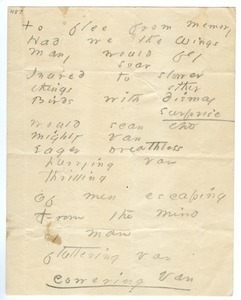 487
to flee from memory
Had we the Wings
Many would fly
soar
Inured to slower
things other
Birds with dismay
surprise
Would scan the
mighty van
Eager breathless
hurrying van
thrilling
Of men escaping
From the mind
of man
fluttering van
cowering Van